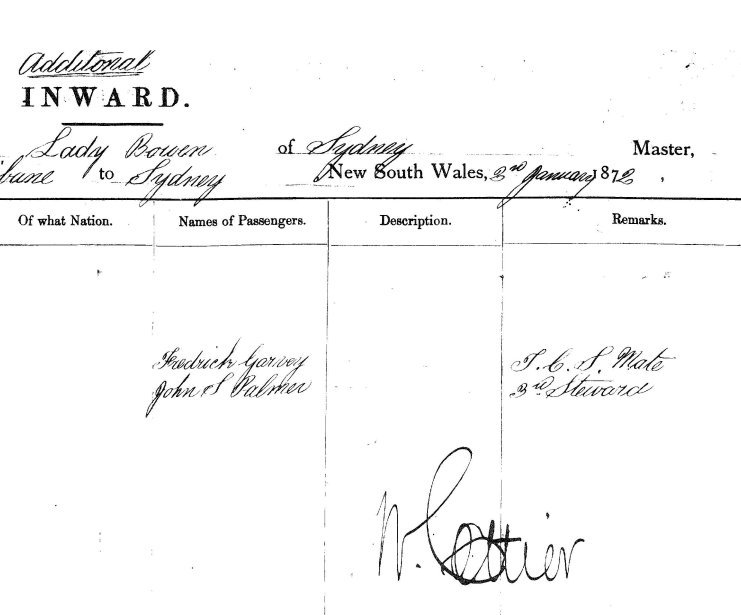 Additonal
INWARD.
Lady Bowen of Sydney Master,
bane to Sydney New South Wales, 3rd January 1872,
Of what Nation. Names of Passengers. Description. Remarks.
Fredrick Garvey T. C. S. Mate
John S Palmer 3rd Steward
W. Cottier